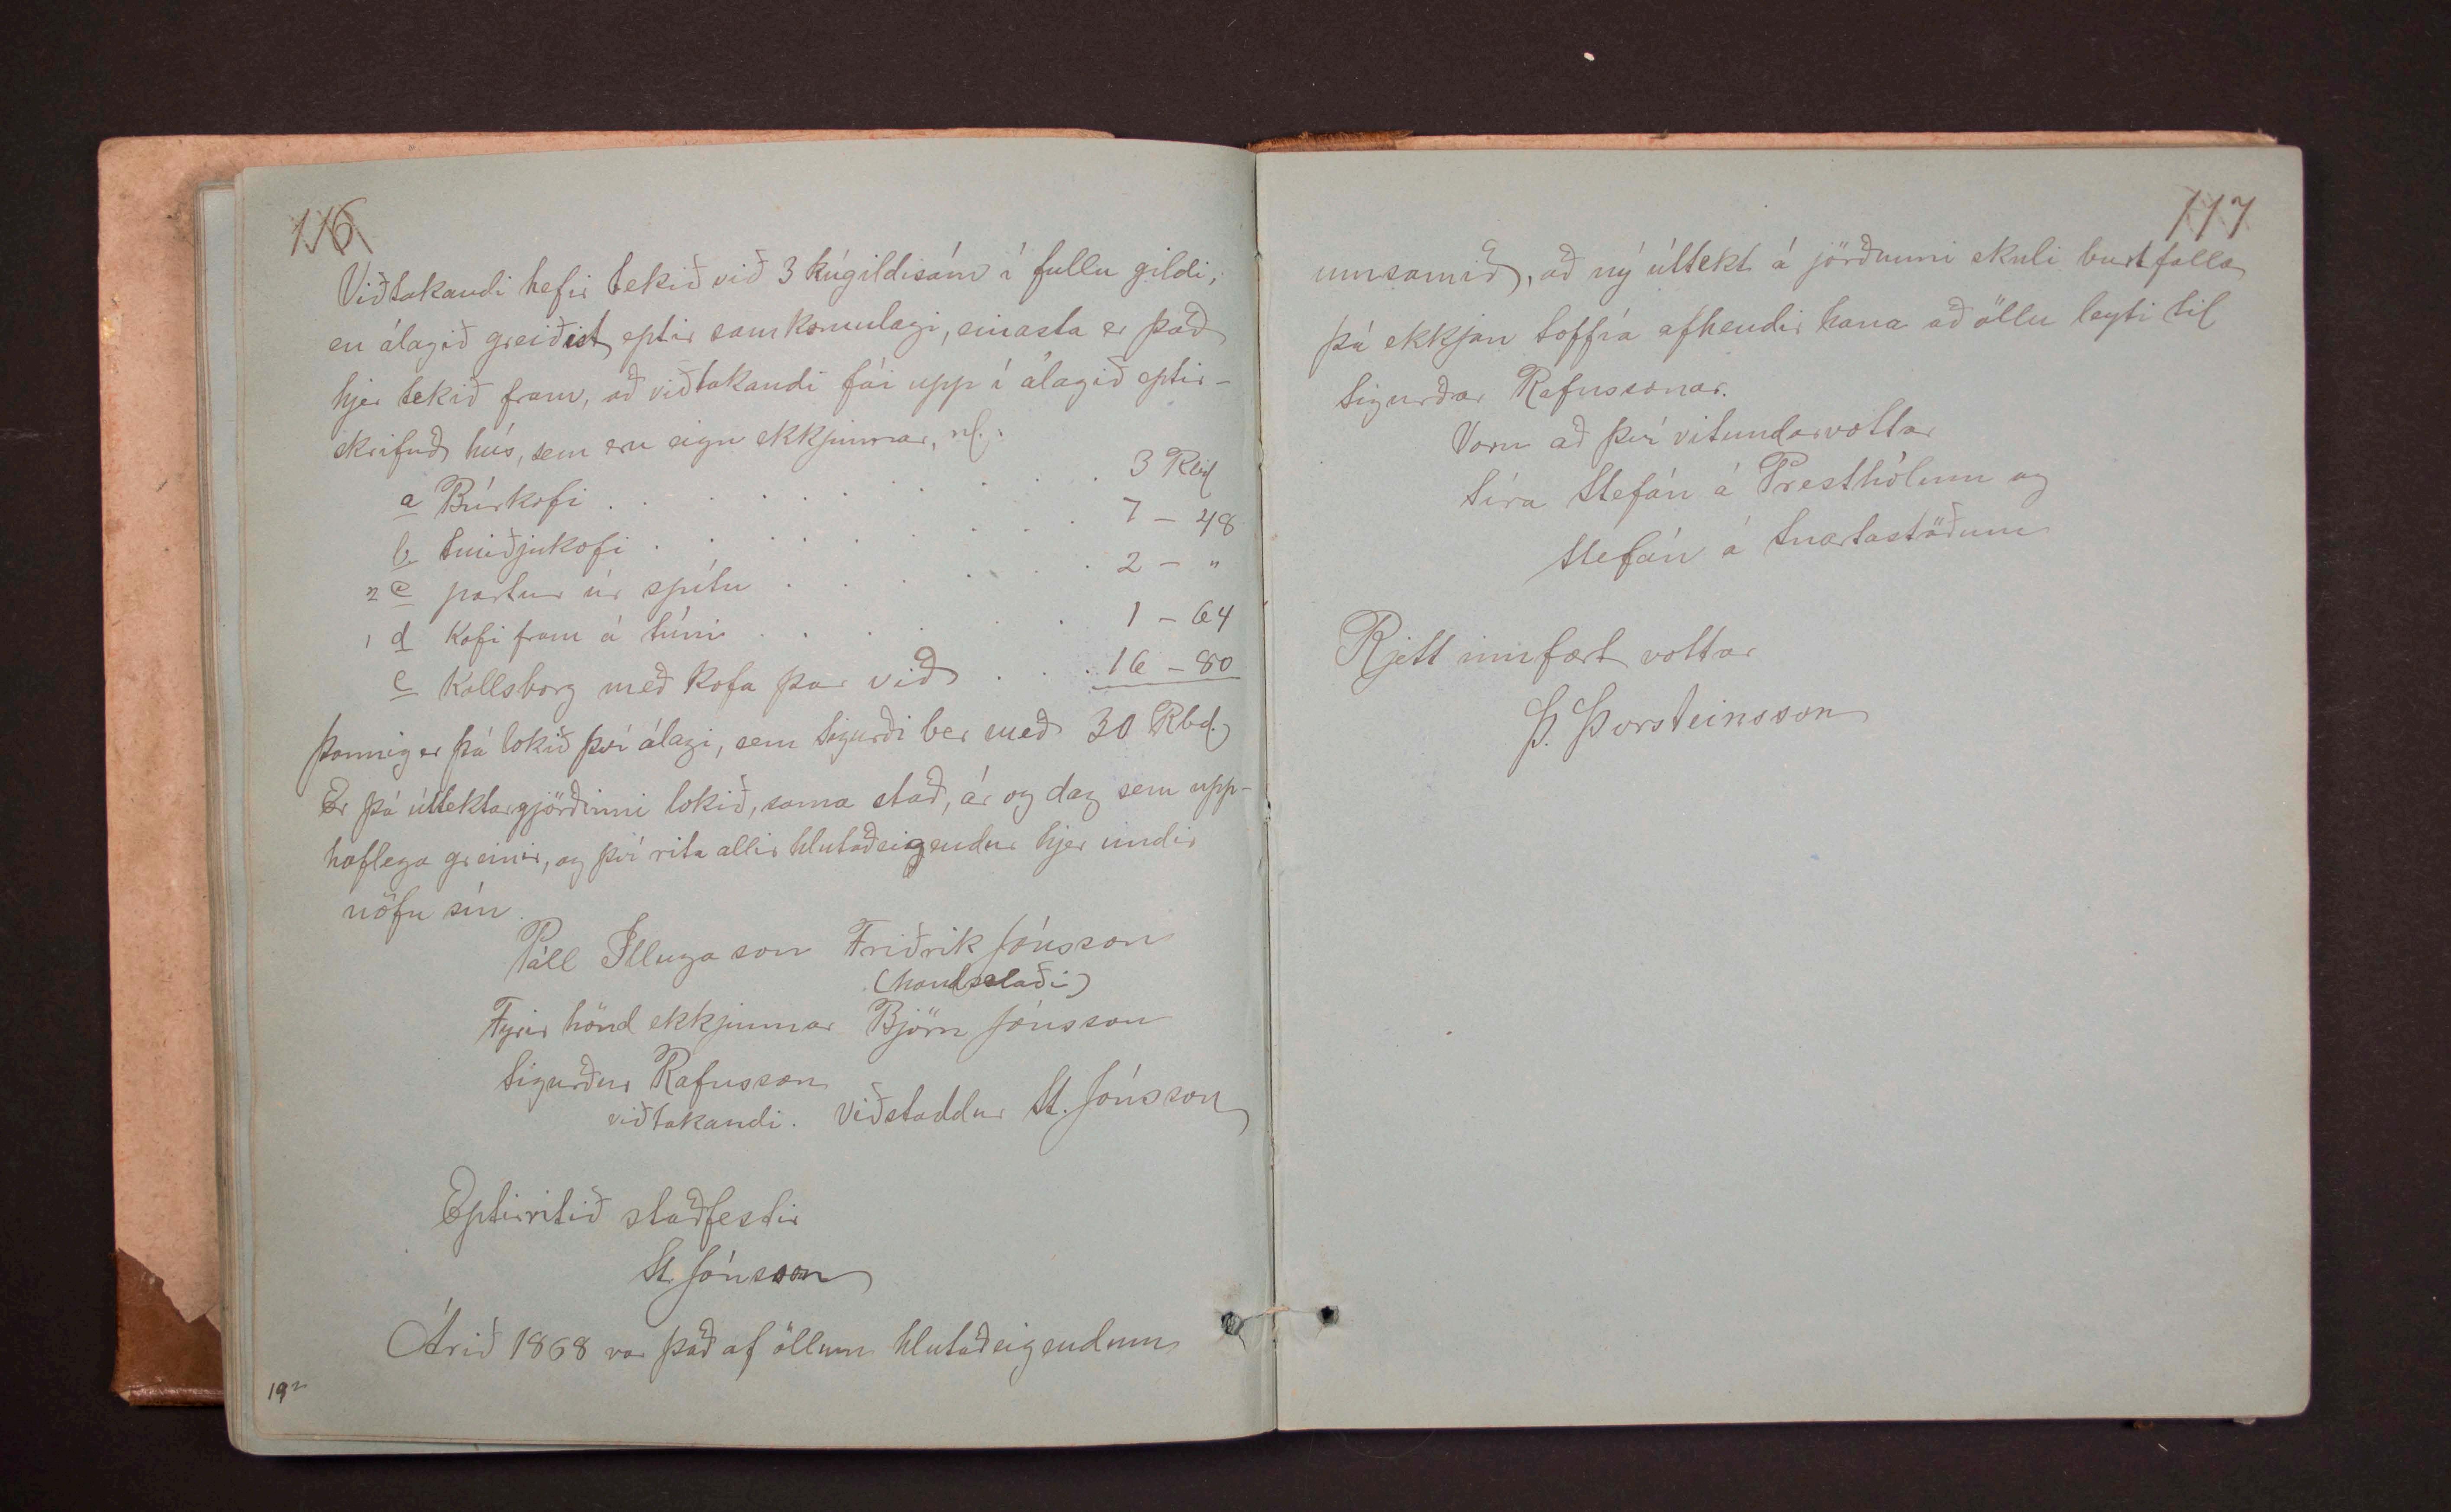 116
Viðtakandi hefir tekið við 3 kúgildisám í fullu gildi,
en álagið greiðist eptir samkomulagi, einasta er það
hjer tekið fram, að viðtakandi fái upp í álagið eptir-
skrifuð hús, sem eru eign ekkjunnar, nl.:
a Búrkofi . . . . . . . . . 3 Rbd
b Smiðjukofi . . . . . . . . 7 – 48
2 c partur úr spítu . . . . . . 2 – "
1 d Kofi fram á túni . . . . . . 1 – 64
e Kollsborg með Kofa þar við . . . 16 – 80
Þannig er þá lokið því álagi, sem Sigurði ber með 30 Rbd.
Er þá úttektargjörðinni lokið, sama stað, ár og dag sem upp-
haflega greinir, og því rita allir hlutaðeigendur hjer undir
nöfn sín.
Páll Illugason Friðrik Jónsson
(handsalaði)
Fyrir hönd ekkjunnar Björn Jónsson
Sigurður Rafnsson
viðtakandi. Viðstaddur St. Jónsson
Eptirritið staðfestir
St. Jónsson
Árið 1868 var það af öllum hlutaðeigendum
19
117
umsamið, að ný úttekt á jörðunni skuli burtfalla
þá ekkjan Soffía afhendir hana að öllu leyti til
Sigurðar Rafnssonar.
Voru að því vitundarvottar
Síra Stefán á Presthólum og
Stefán á Snartastöðum
Rjett innfært vottar
Þ. Þorsteinsson